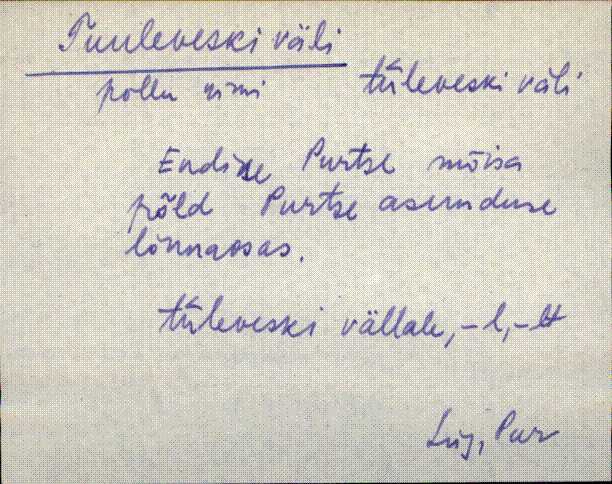 Tuuleveski väli
põllu nimi tūleveski väli
Endine Purtse mõisa
põld Purtse asunduse
lõunaosas.
tūleveski vällale, -l, -lt
Lüg, Pur